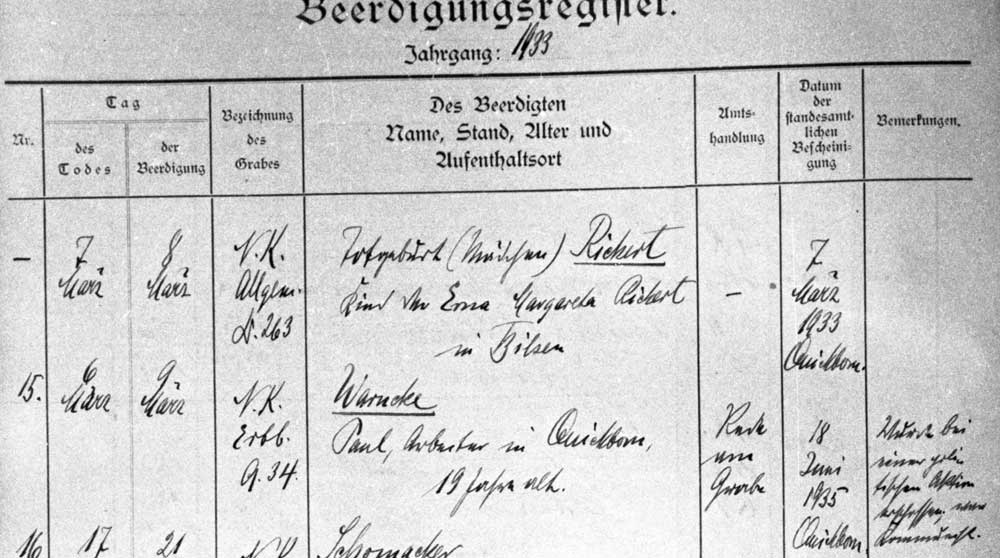 Beerdigungsregister.
Jahrgang: 1933
Nr.
Tag
des Todes
der Beerdigung
Bezeichnung
des
Grabes
Des Beerdigten
Name, Stand, Alter und
Aufenthaltsort
Amts-
handlung
Datum
der
standesamt-
lichen
Bescheini-
gung
Bemerkungen.
–
7
März
8
März
N.K.
Allgem.
D. 263
Totgeburt (Mädchen) Rickert
Kind der Erna Margareta Rickert
in Bilsen
–
7
März
1933
Quickborn.
15.
6
März
9
März
N.K.
Erbb.
G. 34.
Warncke
Paul, Arbeiter in Quickborn,
19 Jahre alt.
Rede
am
Grabe
18
Juni
1935
Quickborn
Wurde bei
einer poli-
tischen Aktion
erschossen, war
Kommunist.
16
17
21
N.K.
Schomacker